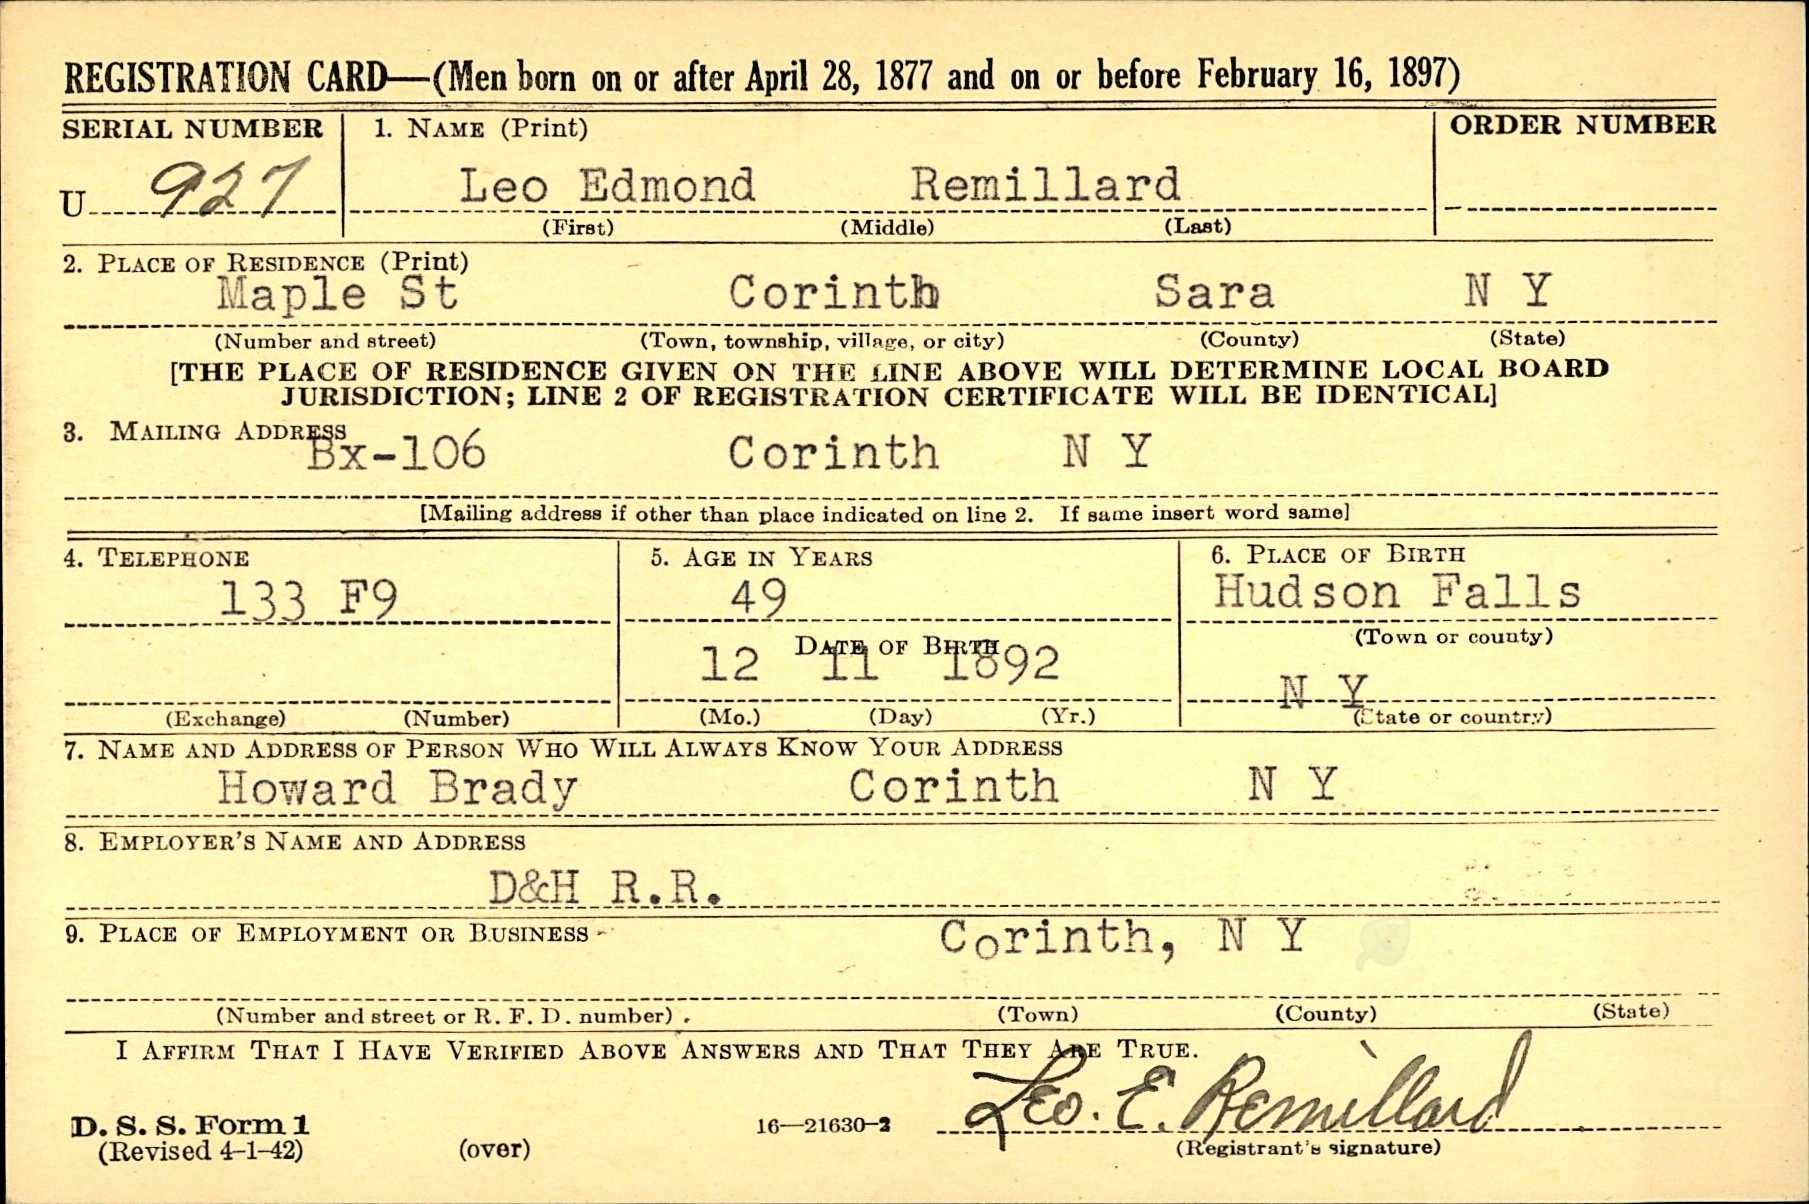 REGISTRATION CARD—(Men born on or after April 28, 1877 and on or before February 16, 1897)
SERIAL NUMBER 1. NAME (Print) ORDER NUMBER
U 927 Leo Edmond Remillard
(First) (Middle) (Last)
2. PLACE OF RESIDENCE (Print)
Maple St Corinth Sara N Y
(Number and street) (Town, township, village, or city) (County) (State)
[THE PLACE OF RESIDENCE GIVEN ON THE LINE ABOVE WILL DETERMINE LOCAL BOARD
JURISDICTION; LINE 2 OF REGISTRATION CERTIFICATE WILL BE IDENTICAL]
3. MAILING ADDRESS
Bx-106 Corinth N Y
[Mailing address if other than place indicated on line 2. If same insert word same]
4. TELEPHONE 5. AGE IN YEARS 6. PLACE OF BIRTH
133 F9 49 Hudson Falls
DATE OF BIRTH (Town or county)
12 11 1892 N Y
(Exchange) (Number) (Mo.) (Day) (Yr.) (State or country)
7. NAME AND ADDRESS OF PERSON WHO WILL ALWAYS KNOW YOUR ADDRESS
Howard Brady Corinth N Y
8. EMPLOYER'S NAME AND ADDRESS
D&H R.R.
9. PLACE OF EMPLOYMENT OR BUSINESS Corinth, N Y
(Number and street or R. F. D. number) (Town) (County) (State)
I AFFIRM THAT I HAVE VERIFIED ABOVE ANSWERS AND THAT THEY ARE TRUE.
Leo. E. Remillard
D. S. S. Form 1 16—21630-2
(Revised 4-1-42) (over) (Registrant's signature)